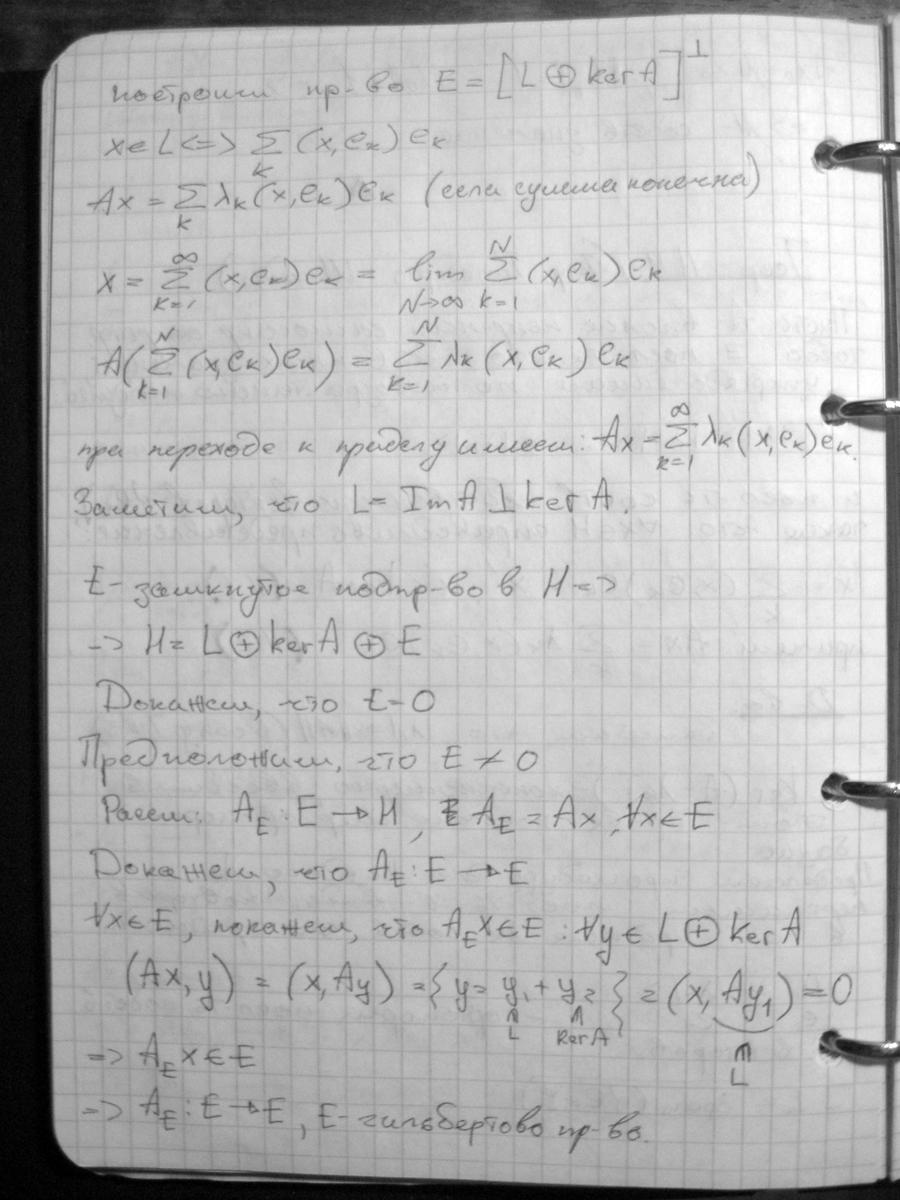 построим пр-во E = [L ⊕ ker A]^⊥
x ∈ L <=> ∑_k (x, e_k) e_k
Ax = ∑_k λ_k (x, e_k) e_k (если сумма конечна)
x = ∑_{k=1}^∞ (x, e_k) e_k = lim_{N→∞} ∑_{k=1}^N (x, e_k) e_k
A(∑_{k=1}^N (x, e_k) e_k) = ∑_{k=1}^N λ_k (x, e_k) e_k
при переходе к пределу имеем: Ax = ∑_{k=1}^∞ λ_k (x, e_k) e_k.
Заметим, что L = Im A ⊥ ker A.
E - замкнутое подпр-во в H =>
=> H = L ⊕ ker A ⊕ E
Докажем, что E = 0
Предположим, что E ≠ 0
Рассм: A_E : E → H, A_E = Ax, ∀x ∈ E
Докажем, что A_E : E → E
∀x ∈ E, покажем, что A_E x ∈ E : ∀y ∈ L ⊕ ker A
(Ax, y) = (x, Ay) = { y = y_1 + y_2 } = (x, Ay_1) = 0
∈ L ∈ ker A ∈ L
=> A_E x ∈ E
=> A_E : E → E, E - гильбертово пр-во.